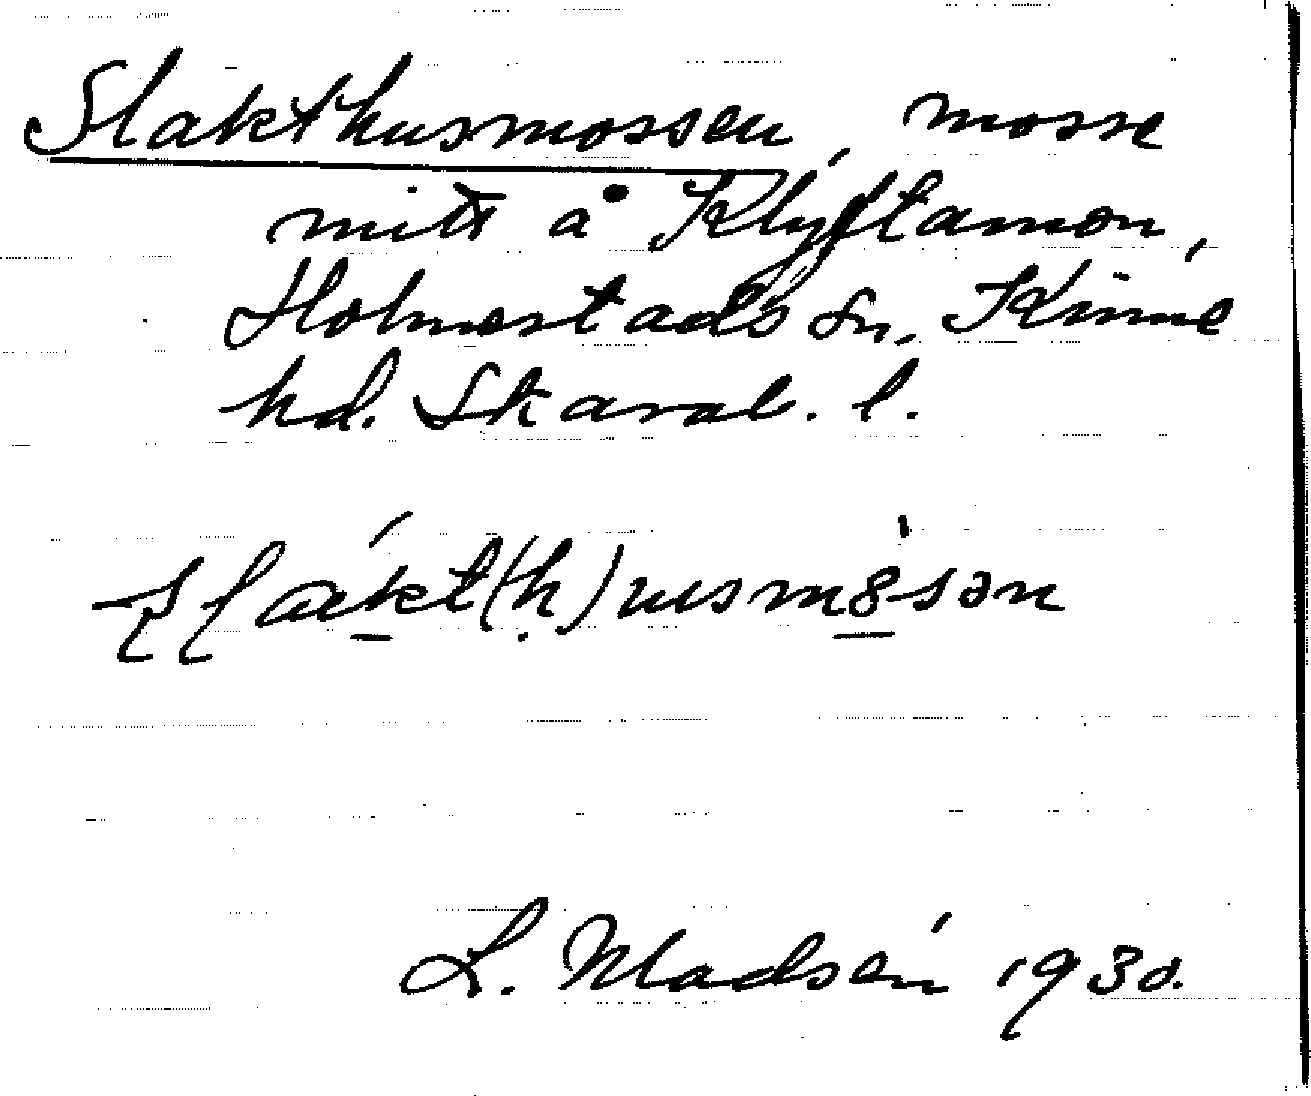 Slakthusmossen, mosse
mitt å Klyftamon,
Holmestads sn, Kinne
hd. Skarab. l.
slákt(h)usmòsən
L. Madsén 1930.